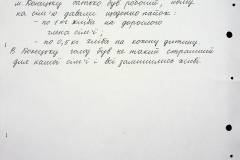 м. Донецьку батько був робочий, йому
на сім'ю давали щоденно пайок:
- по 1 кг хліба на дорослого
члена сім'ї;
- по 0,5 кг хліба на кожну дитину.
В Донецьку голод був не такий страшний
для нашої сім'ї і всі залишились живі.